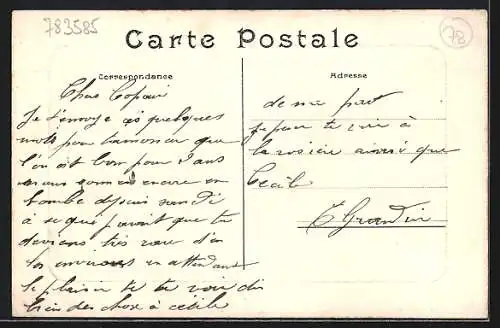 783585
78
Carte Postale
Correspondance
Adresse
Cher Copain
Je t'envoye ces quelques
mots pour que
l'on est bon pour 2 ans
nous sommes encore en
bombe depuis samdi
à se que parait que tu
deviens très rare d'en
les environs en attendant
le plaisir de te voir dis
bien des chose à cécile
de ma part
je pense te voir à
la rosière ainsi que
Cécile
E Grandin